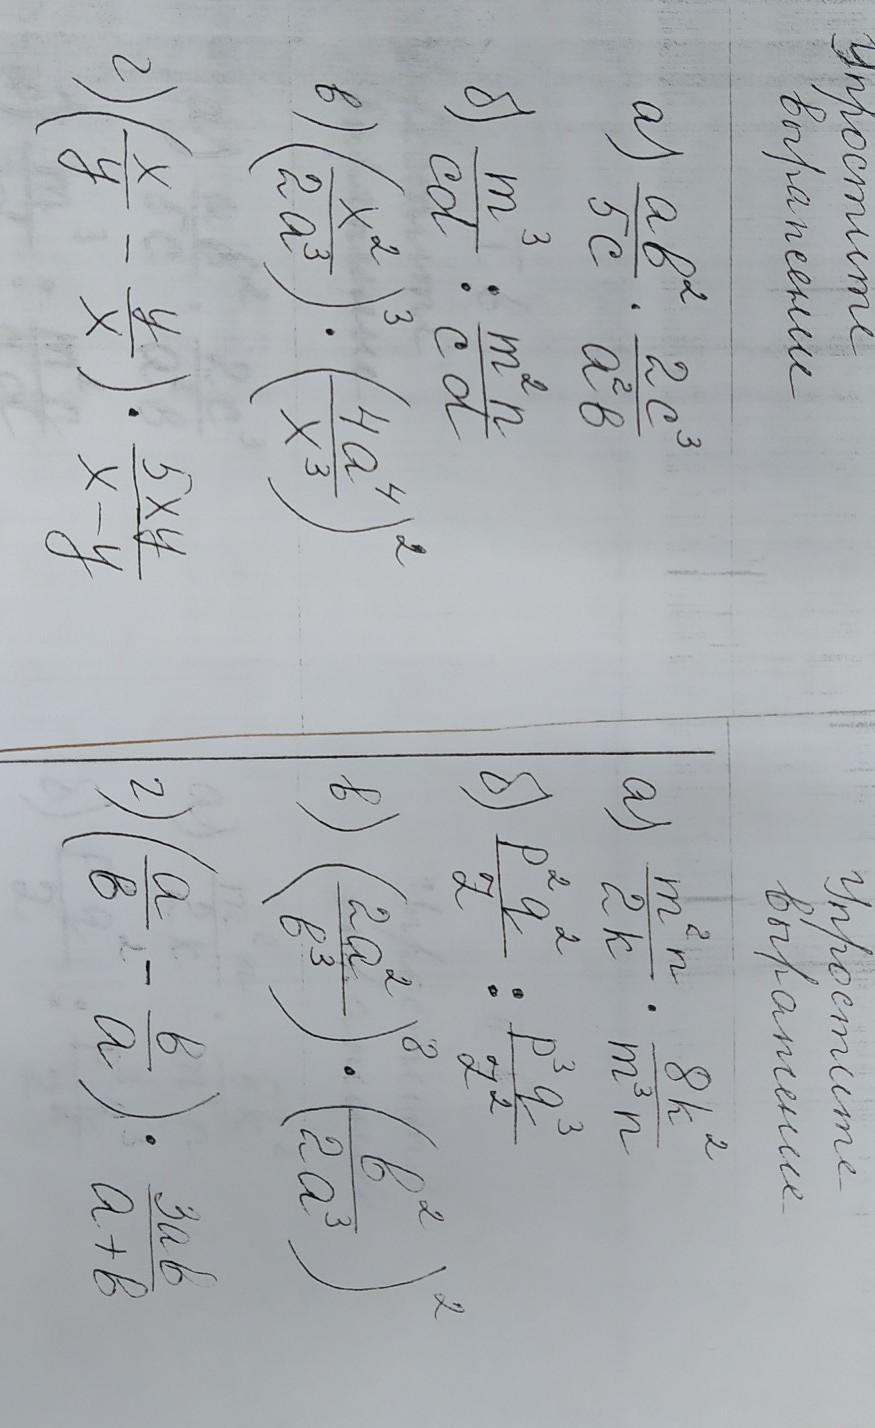 Упростите
выражение
а) ab²/5c · 2c³/a²b
б) m³/cd : m²n/cd
в) (x²/2a³)³ · (4a⁴/x³)²
г) (x/y − y/x) · 5xy/x−y
Упростите
выражение
а) m²n/2k · 8k²/m³n
б) p²q²/7 : p³q³/7²
в) (2a²/b³)⁸ · (b²/2a³)²
г) (a/b − b/a) · 3ab/a+b